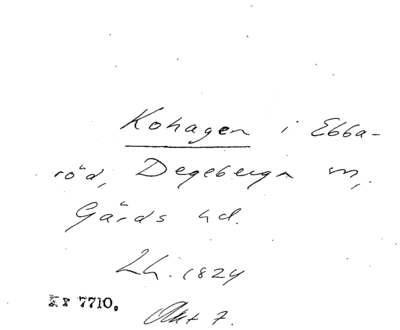 Kohagen i Ebba-
röd, Degeberga sn,
Gärds hd.
Lh. 1824
Kr 7710.
Akt 7.